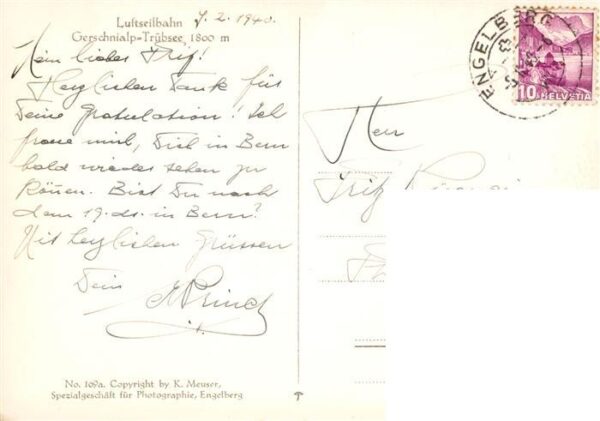 Luftseilbahn
Gerschnialp-Trübsee 1800 m
7. 2. 1940.
Mein lieber Fritz!
Herzlichen Dank für
Deine Gratulation! Ich
freue mich, Dich in Bern
bald wieder sehen zu
können. Bist Du nach
dem 19. ds. in Bern?
Mit herzlichen Grüssen
Dein
ENGELBERG
10 HELVETIA
Herrn
Fritz
No. 109a. Copyright by K. Meuser,
Spezialgeschäft für Photographie, Engelberg